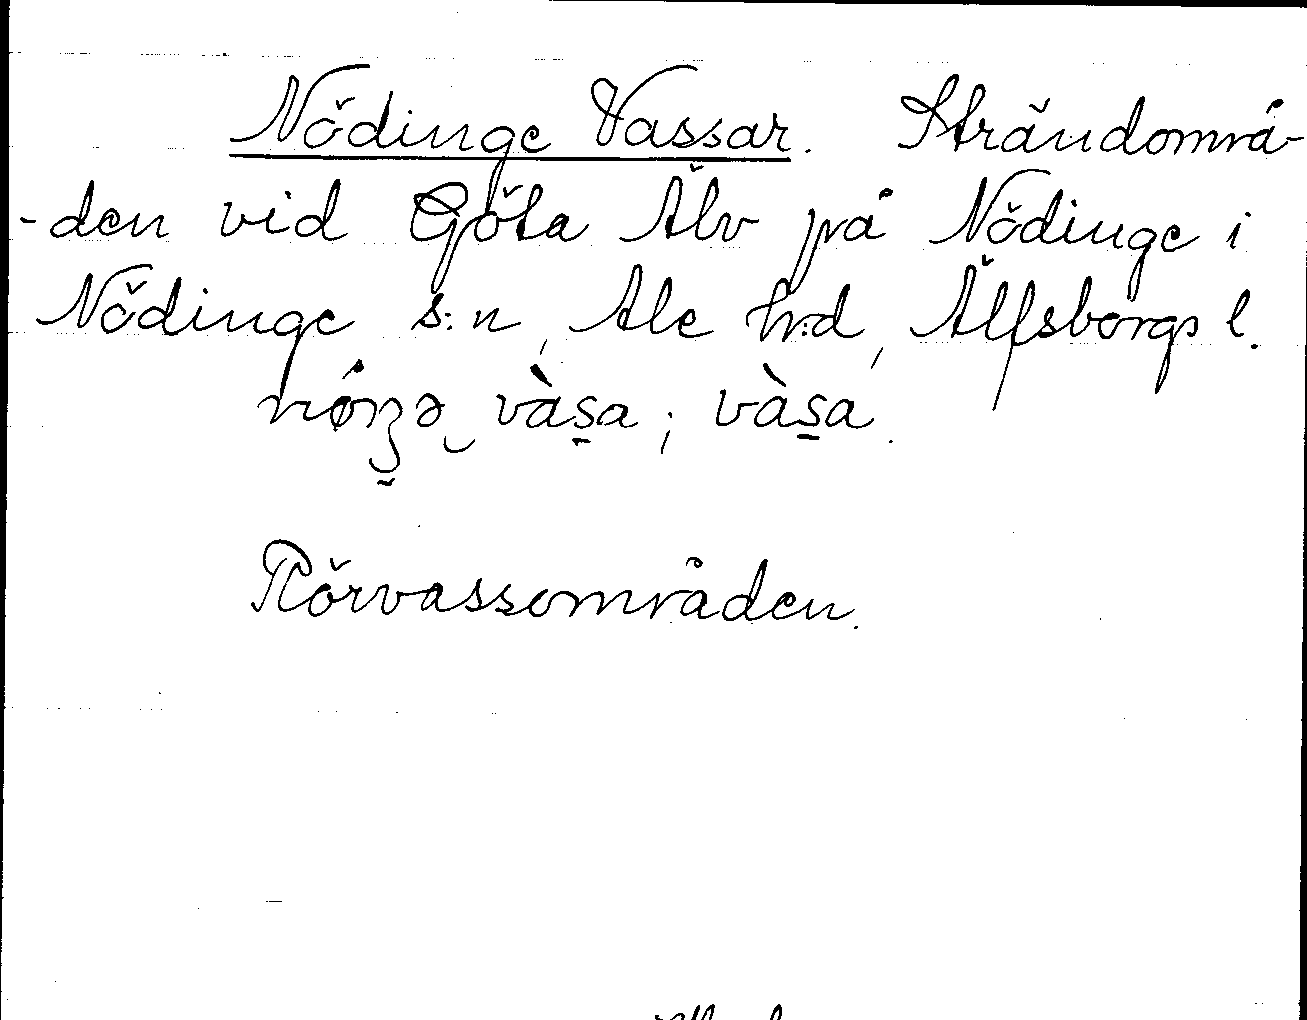 Nödinge Vassar. Strändområ-
-den vid Göta Älv på Nödinge i
Nödinge s:n, Ale h:d, Älfsborgs l.
vàs̠a; vàs̠a.
Rörvassområden.